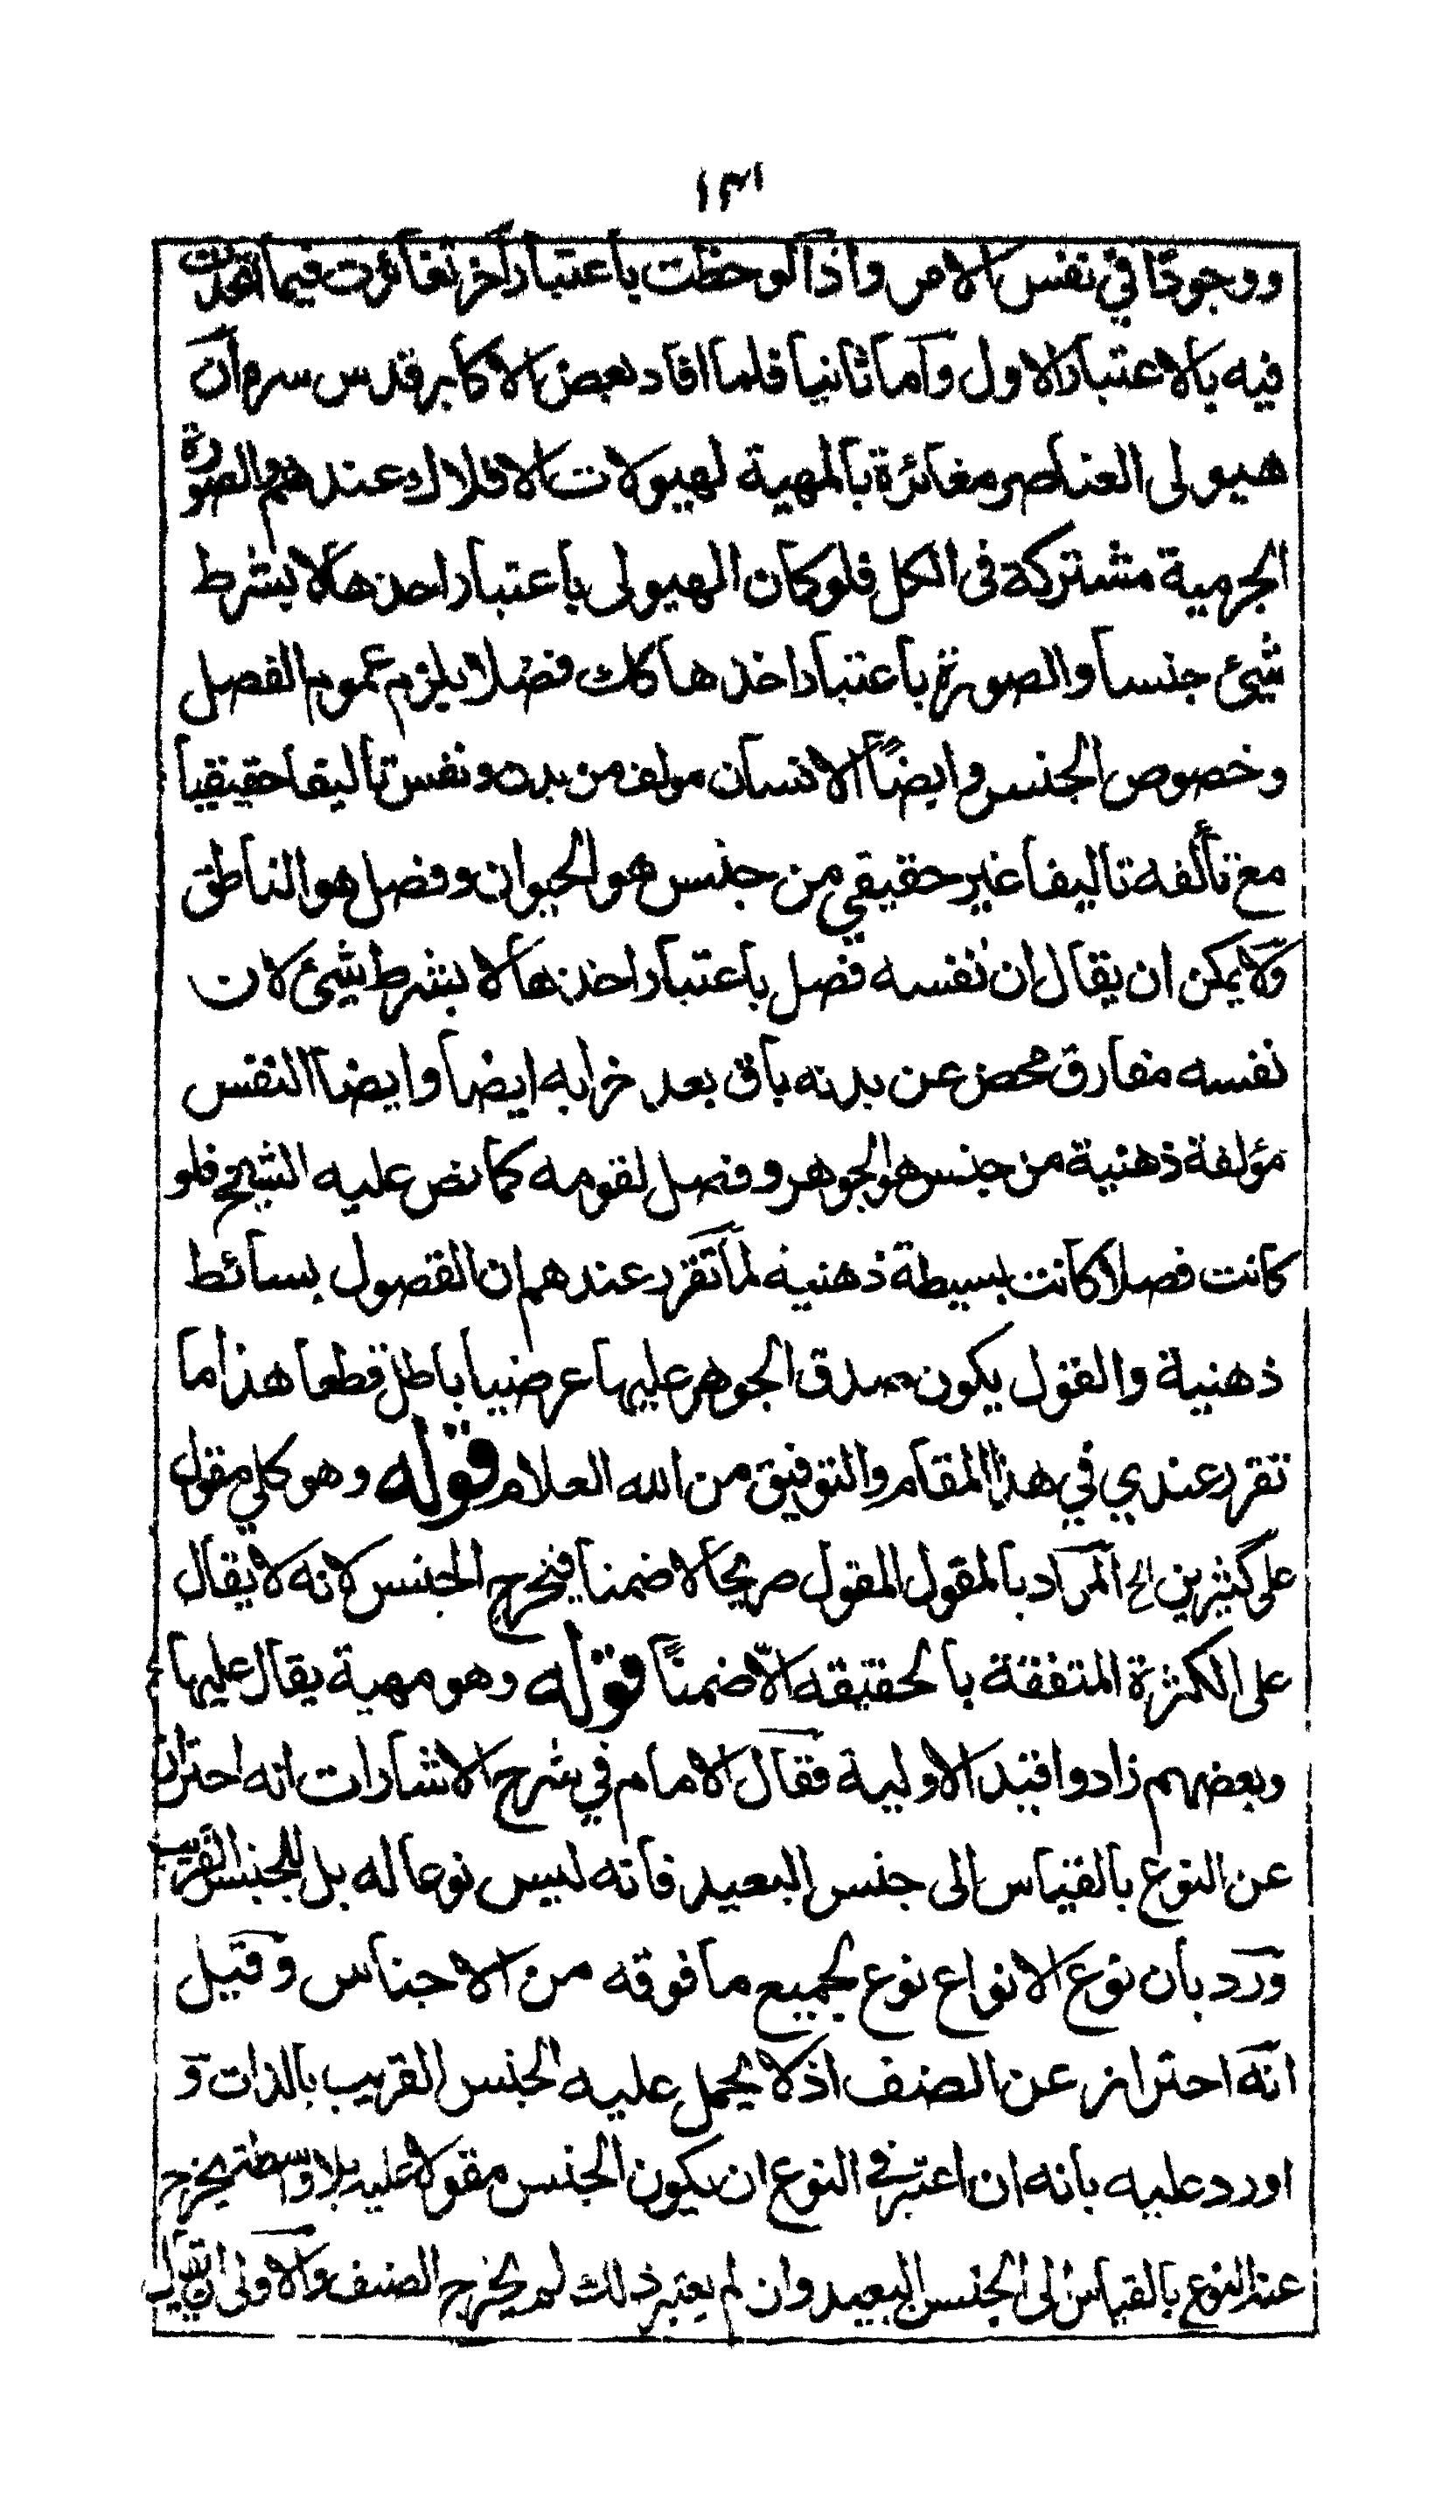 ١٣١
ووجودًا في نفس الامر واذا لوحظت باعتبار آخر تغائرت فيما اتحدت
فيه بالاعتبار الاول وآما ثانيا فلما افاد بعض الاكابر قدس سره ان
هيولى العناصر مغائرة بالمهية لهيولات الافلاك عندهم والصورة
الجرمية مشتركة فى الكل فلو كان الهيولى باعتبار احذها لا بشرط
شيئ جنسا والصورة باعتبار اخذها كك فصلا يلزم عموم الفصل
وخصوص الجنس وايضًا الانسان مولف من بدن ونفس تاليفا حقيقيا
مع تألفه تاليفا غير حقيقي من جنس هو الحيوان وفصل هو الناطق
ولا يمكن ان يقال ان نفسه فصل باعتبار اخذها لا بشرط شيئ لان
نفسه مفارق محض عن بدنه باق بعد خرابه ايضا وايضا النفس
مؤلفة ذهنية من جنس هو الجوهر وفصل لقومه كما نص عليه الشيخ فلو
كانت فصلا كانت بسيطة ذهنية لما تقرر عندهم ان الفصول بسائط
ذهنية والقول يكون صدق الجوهر عليها عرضيا باطل قطعا هذا ما
تقرر عندي في هذا المقام والتوفيق من الله العلام قوله وهو كلي مقول
على كثيرين الخ المراد بالمقول المقول صريحا لا ضمنا فيخرج الجنس لانه لا يقال
على الكثرة المتفقة بالحقيقه الّا ضمنًا قوله وهو مهية يقال عليها
وبعضهم زادوا قيد الاولية فقال الامام في شرح الاشارات انه احتراز
عن النوع بالقياس الى جنس البعيد فانه ليس نوعا له بل للجنس القريب
ورد بان نوع الانواع نوع لجميع ما فوقه من الاجناس وقيل
انه احتراز عن الصنف اذ لا يحمل عليه الجنس القريب بالذات و
اورد عليه بانه ان اعتبر في النوع ان يكون الجنس مقولا عليه بلا واسطة يخرج
عنه النوع بالقياس الى الجنس البعيد وان لم يعتبر ذلك لم يخرج الصنف والاولى ان